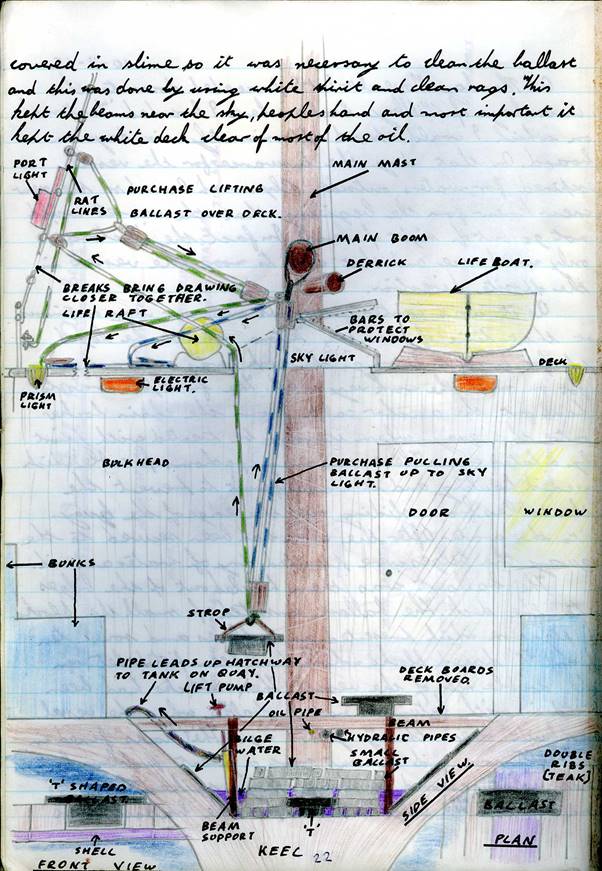 covered in slime so it was necessary to clean the ballast
and this was done by using white spirit and clean rags. This
kept the beams near the sky, peoples hand and most important it
kept the white deck clear of most of the oil.
PORT
LIGHT
RAT
LINES
PURCHASE LIFTING
BALLAST OVER DECK.
MAIN MAST
MAIN BOOM
DERRICK
LIFE BOAT.
BREAKS BRING DRAWING
CLOSER TOGETHER.
LIFE RAFT
BARS TO
PROTECT
WINDOWS
SKY LIGHT
DECK
PRISM
LIGHT
ELECTRIC
LIGHT.
BULKHEAD
PURCHASE PULLING
BALLAST UP TO SKY
LIGHT.
DOOR
WINDOW
BUNKS
STROP
PIPE LEADS UP HATCHWAY
TO TANK ON QUAY.
LIFT PUMP
BALLAST
DECK BOARDS
REMOVED.
OIL PIPE
BEAM
HYDRALIC PIPES
BILGE
WATER
SMALL
BALLAST
DOUBLE
RIBS
(TEAK)
'T' SHAPED
BALLAST.
SIDE VIEW.
BALLAST
BEAM
SUPPORT
'T'
SHELL
KEEL
PLAN
FRONT VIEW
22